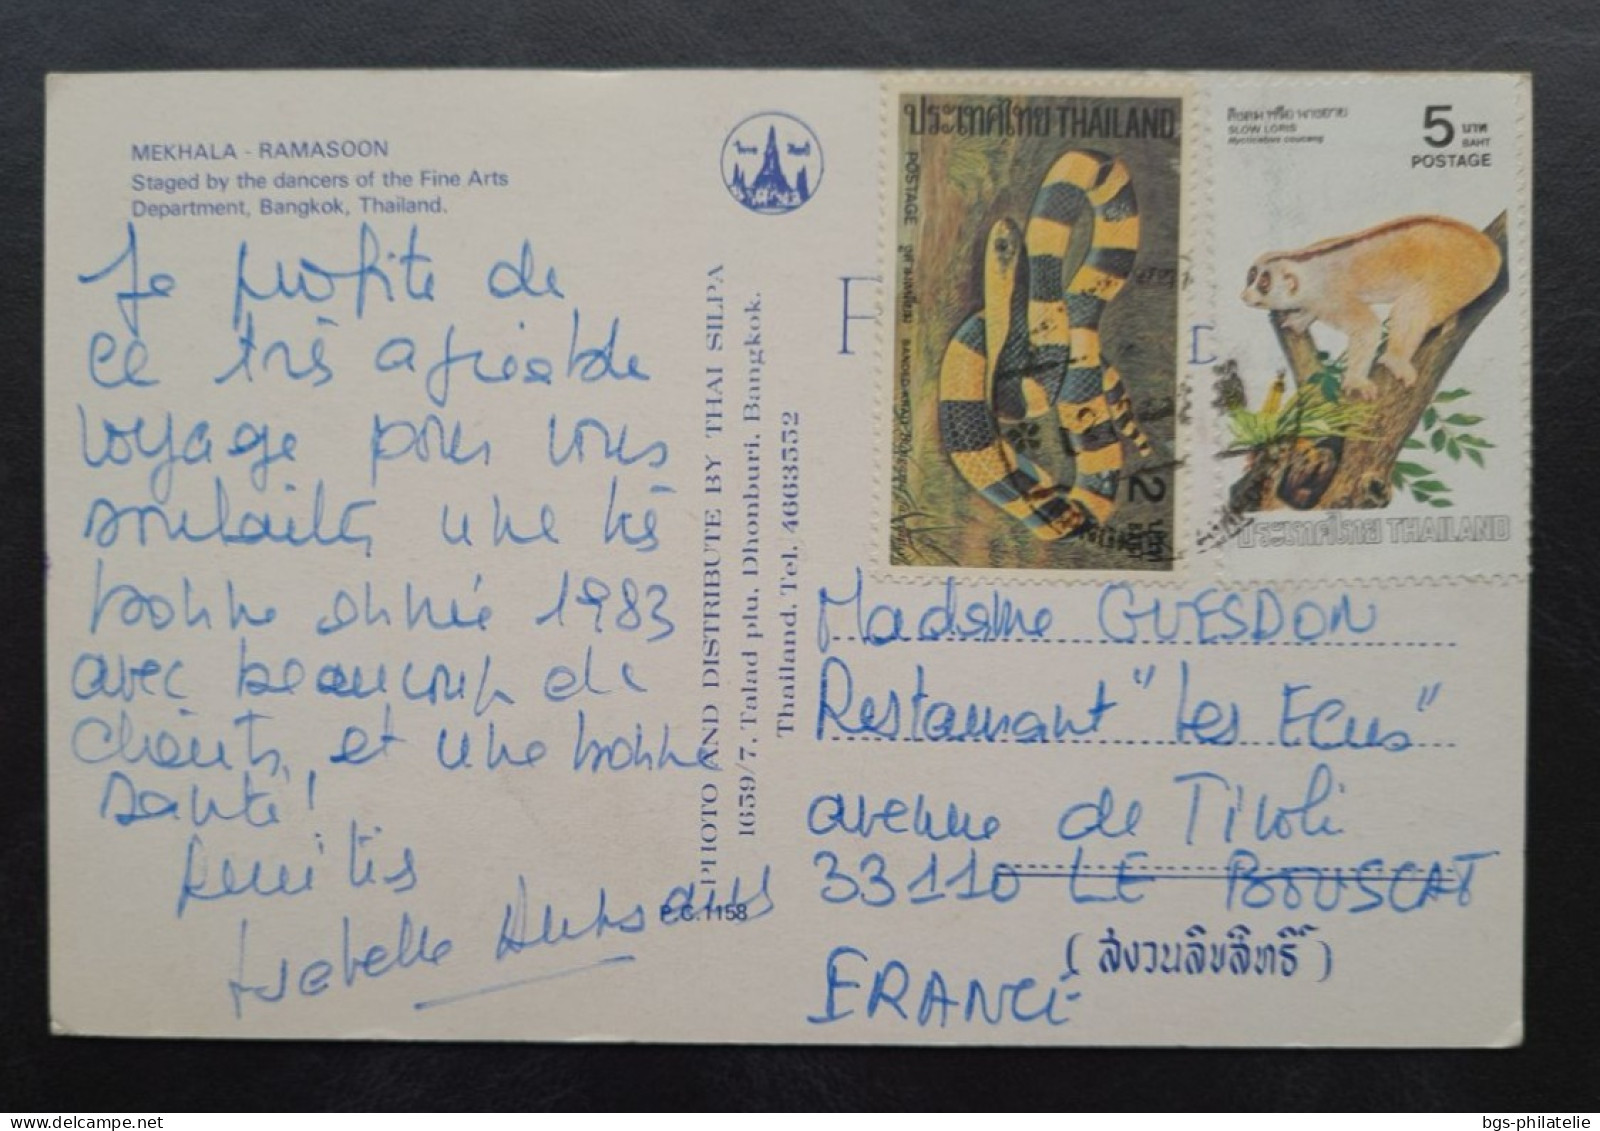 MEKHALA - RAMASOON
Staged by the dancers of the Fine Arts
Department, Bangkok, Thailand.
Je profite de
ce très agréable
voyage pour vous
souhaiter une très
bonne année 1983
avec beaucoup de
clients, et une bonne
santé!
Amitiés
Isabelle
PHOTO AND DISTRIBUTE BY THAI SILPA
1659/7, Talad plu, Dhonburi, Bangkok.
Thailand. Tel. 4663552
P.C.1158
ประเทศไทย THAILAND
POSTAGE
งูสามเหลี่ยม
BANDED KRAIT
2 บาท
BAHT
SLOW LORIS
Nycticebus coucang
5 บาท
BAHT
POSTAGE
ประเทศไทย THAILAND
Madame GUESDON
Restaurant "Les Ecus"
avenue de Tivoli
33110 LE BOUSCAT
(สงวนลิขสิทธิ์)
FRANCE
bgs-philatelie